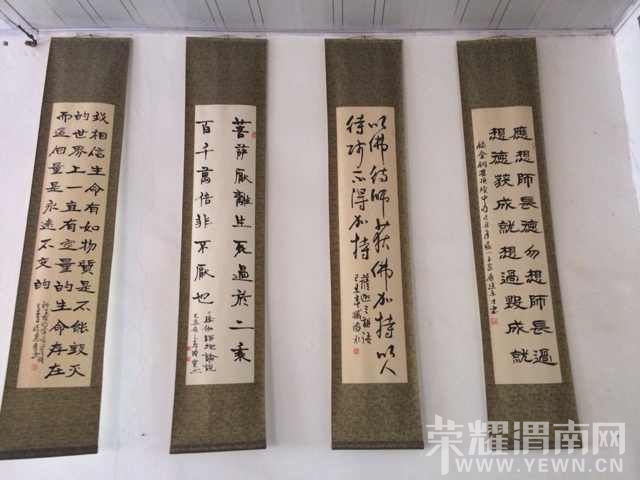 應想師長德勿想師長過
想德獲成就想過毀成就
以佛待師獲佛加持以人
待師亦得加持
菩薩厭離生死過於二乘
百千萬倍非不厭也
我相信生命有如物質是不能毀灭
的世界上一直有定量的生命存在
而這個量是永遠不变的
荣耀渭南网
WWW.YEWN.CN